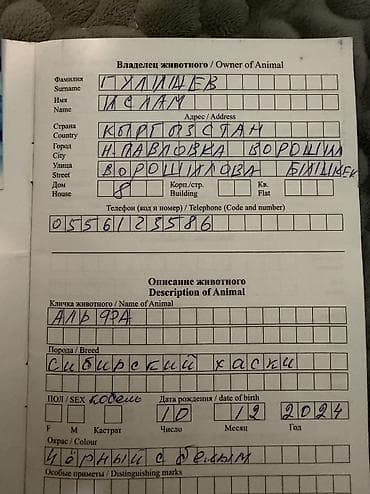 Владелец животного / Owner of Animal
Фамилия ГУЛИЩЕВ
Surname
Имя ИСЛАМ
Name
Адрес / Address
Страна КЫРГЫЗСТАН
Country
Город Н.ПАВЛОВКА ВОРОШИЛ
City
Улица ВОРОШИЛОВА БИШКЕК
Street
Дом 8 Корп./стр. Кв.
House Building Flat
Телефон (код и номер) / Telephone (Code and number)
0556123586
Описание животного
Description of Animal
Кличка животного / Name of Animal
АЛЬФА
Порода / Breed
Сибирский хаски
ПОЛ / SEX кобель Дата рождения / date of birth
10 12 2024
F M Кастрат Число Месяц Год
Окрас / Colour
Чёрный с белым
Особые приметы / Distinguishing marks